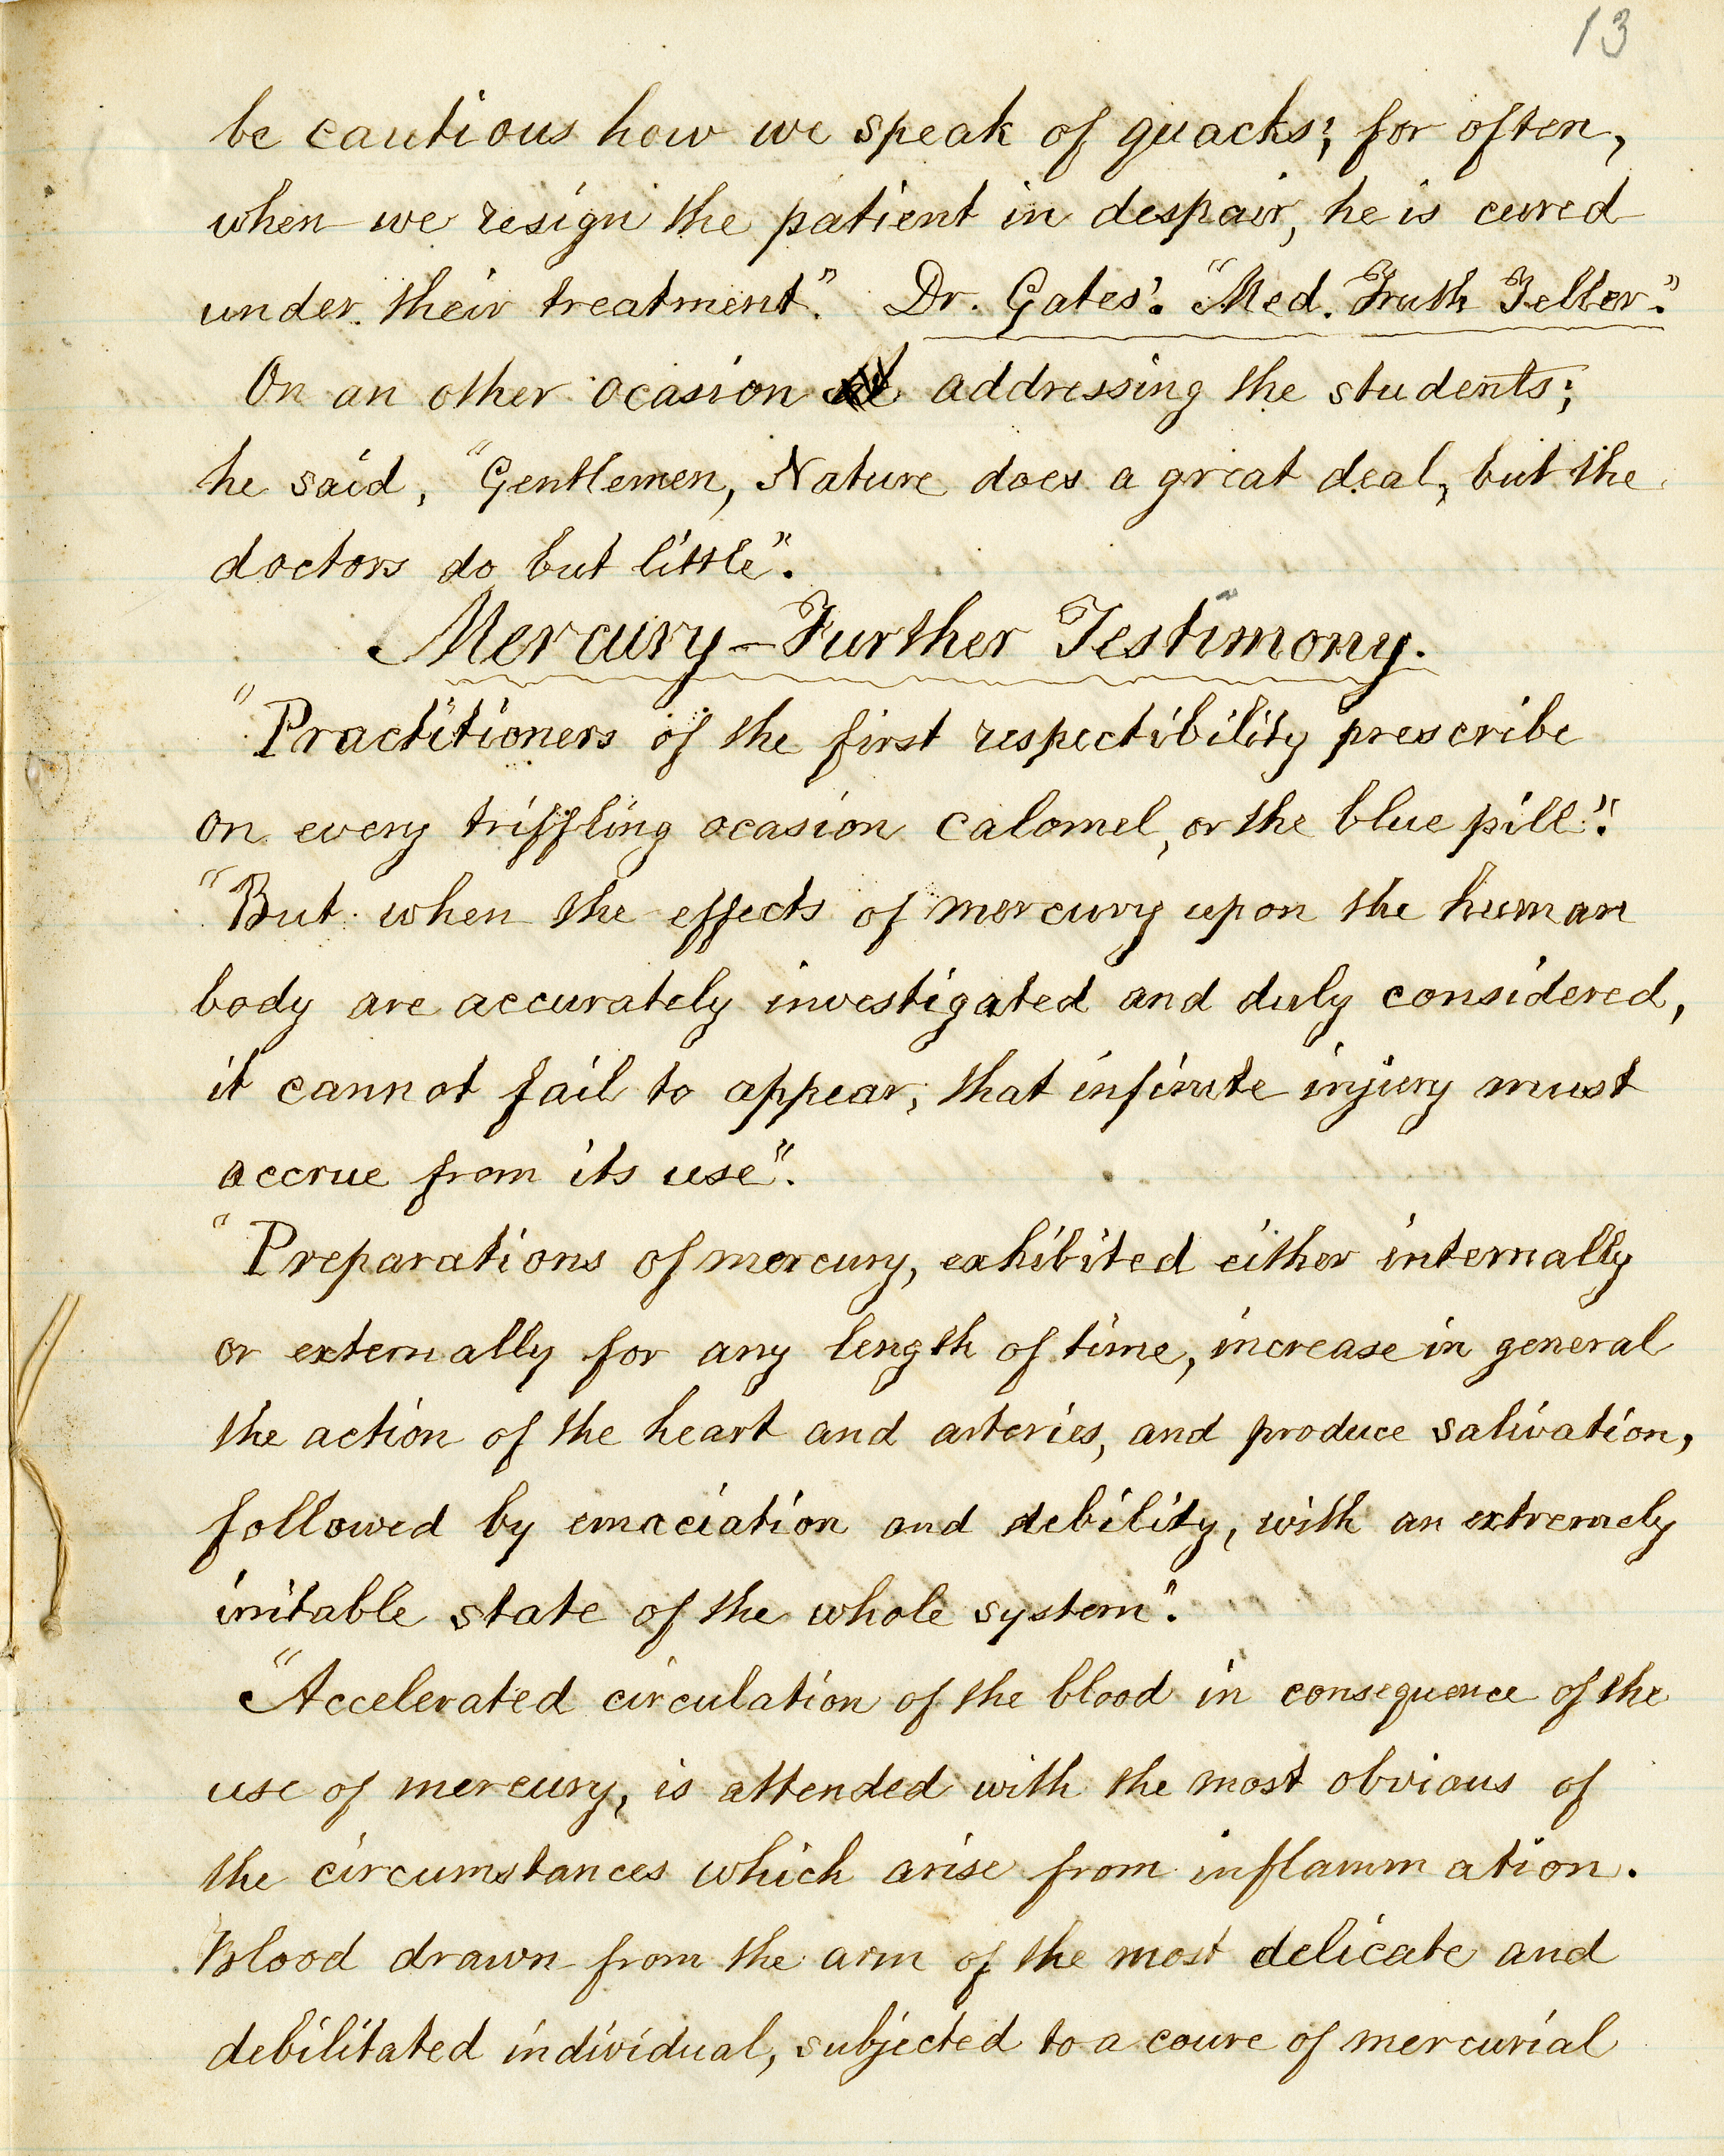 13
be cautious how we speak of quacks; for often,
when we resign the patient in despair, he is cured
under their treatment". Dr. Gates'. "Med. Truth Teller".
On an other ocasion addressing the students;
he said, "Gentlemen, Nature does a great deal, but the
doctors do but little".
Mercury – Further Testimony.
"Practitioners of the first respectibility prescribe
on every triffling ocasion calomel, or the blue pill".
"But when the effects of mercury upon the human
body are accurately investigated and duly considered,
it cannot fail to appear, that infinite injury must
accrue from its use".
"Preparations of mercury, exhibited either internally
or externally for any length of time, increase in general
the action of the heart and arteries, and produce salivation,
followed by emaciation and debility, with an extremely
irritable state of the whole system".
"Accelerated circulation of the blood in consequence of the
use of mercury, is attended with the most obvious of
the circumstances which arise from inflammation.
Blood drawn from the arm of the most delicate and
debilitated individual, subjected to a coure of mercurial